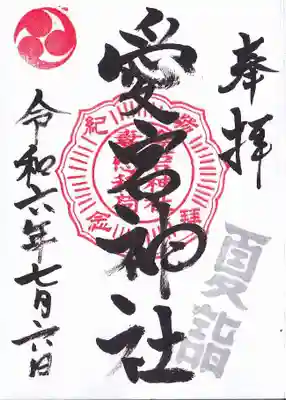 奉拝
夏詣
愛宕神社
令和六年七月六日